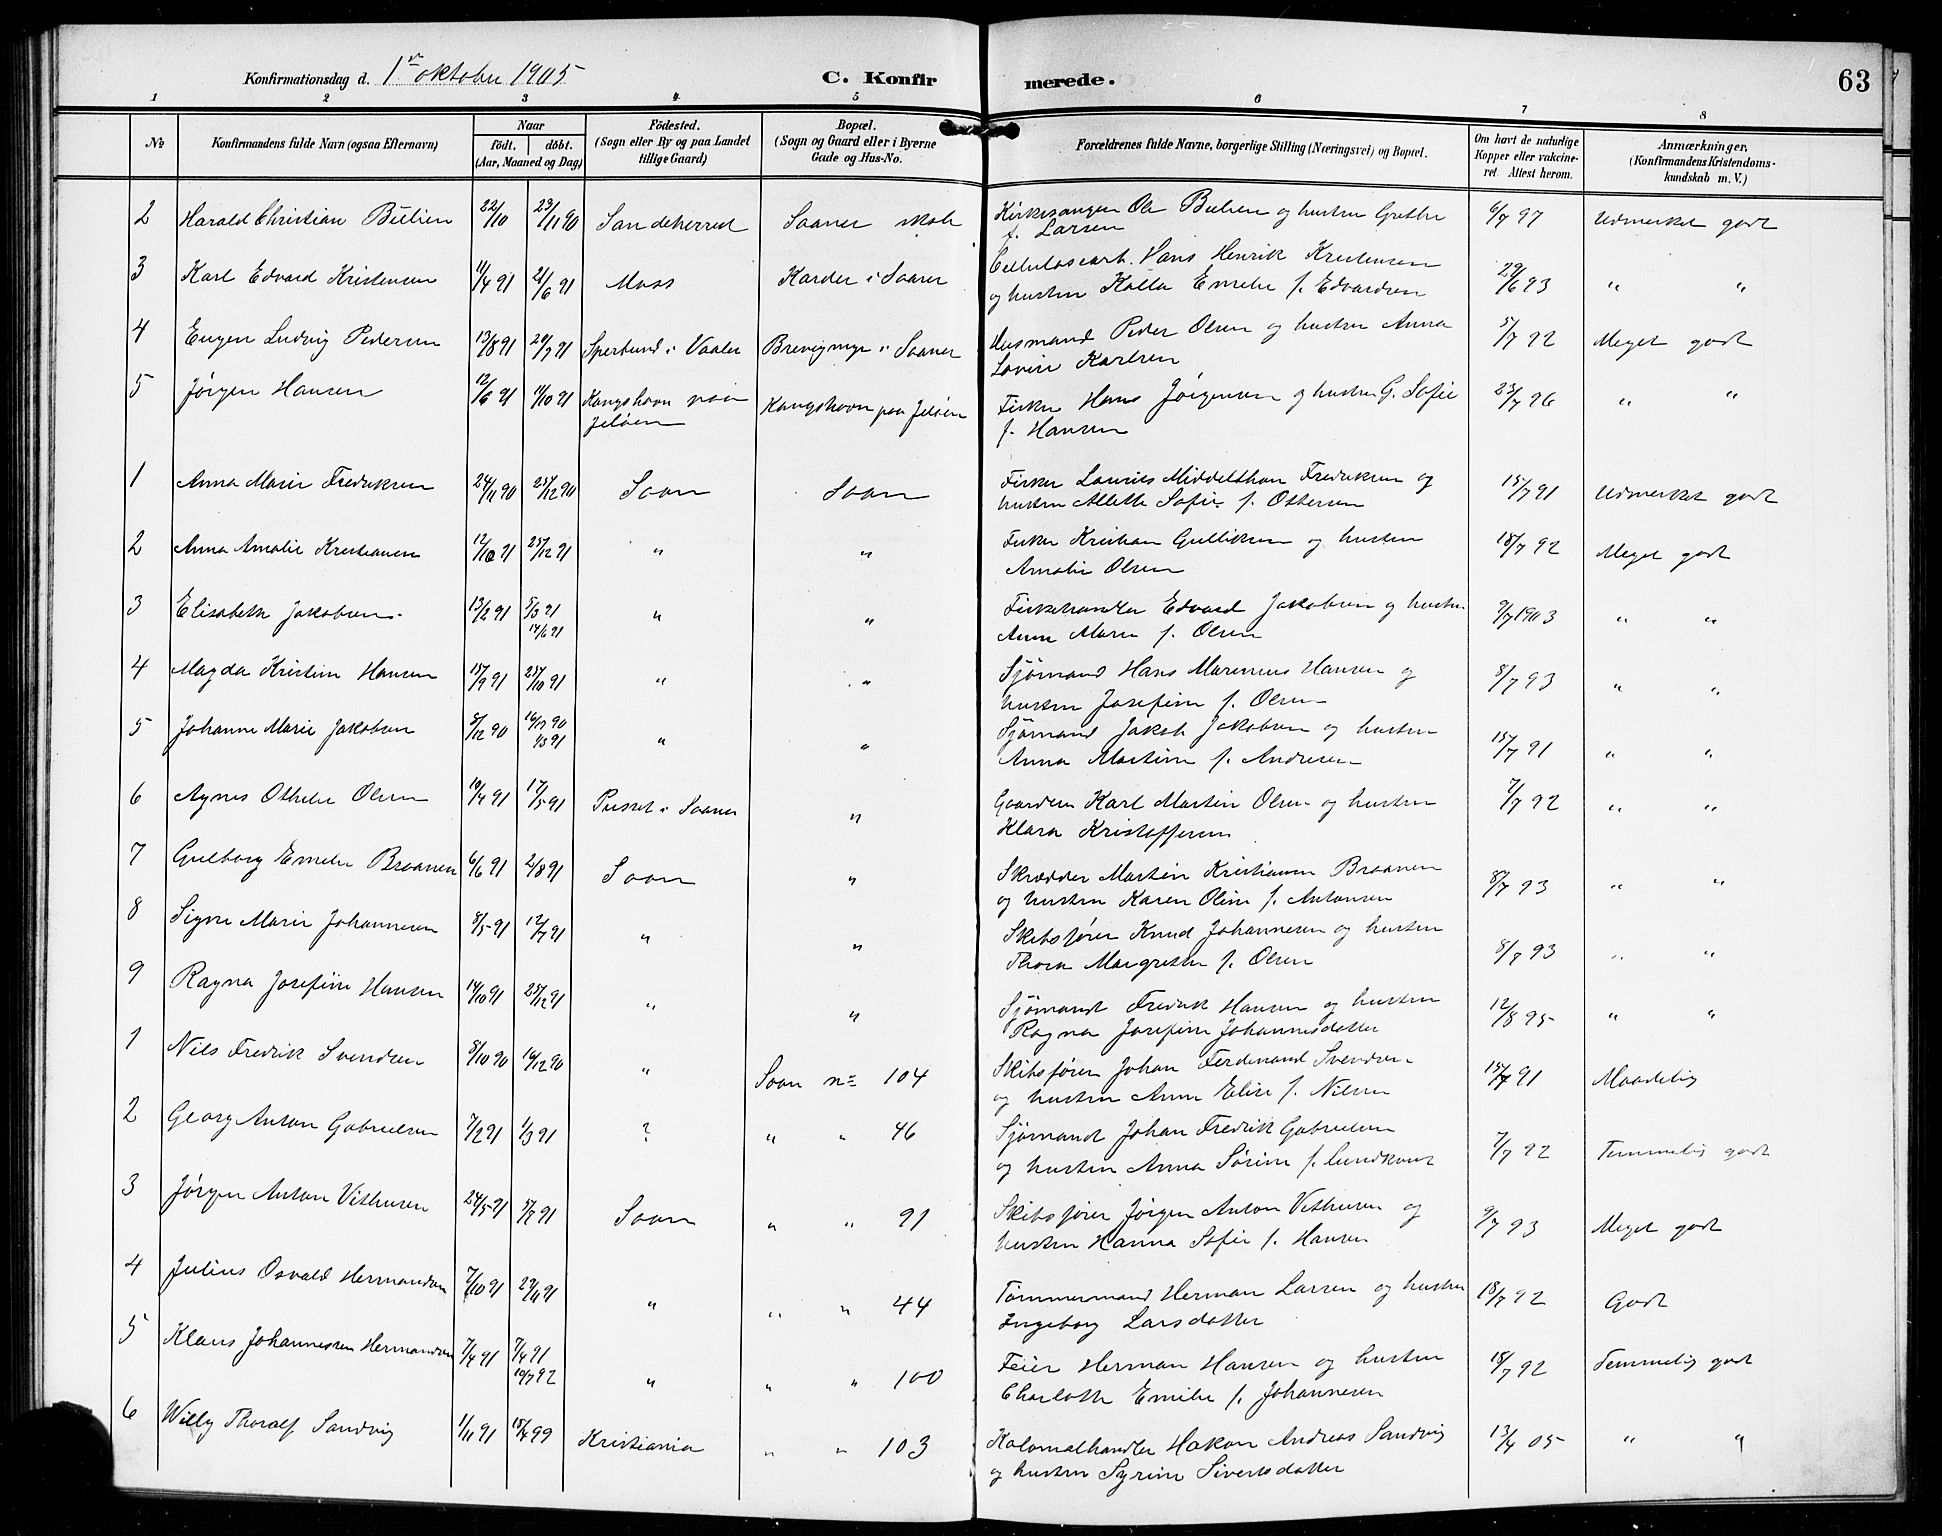 Konfirmationsdag d. 1ste oktober 1905 C. Konfirmerede. 63
1 2 3 4 5 6 7 8
№ Konfirmandens fulde Navn (ogsaa Efternavn) Naar födt. döbt. (Aar, Maaned og Dag) Födested. (Sogn eller By og paa Landet tillige Gaard) Bopæl. (Sogn og Gaard eller i Byerne Gade og Hus-No. Forældrenes fulde Navne, borgerlige Stilling (Næringsvei) og Bopæl. Om havt de naturlige Kopper eller vakcineret. Attest herom. Anmærkninger. (Konfirmandens Kristendomskundskab m. V.)
2 Harald Christian Bulien 22/10 29/11 90 Sandeherred Saaner skole Kirkesanger Ole Bulien og hustru Grethe f. Larsen 6/7 97 Udmerket godt
3 Karl Edvard Kristensen 11/4 91 21/6 91 Moss Karder i Saaner Cellulosearb. Hans Henrik Kristensen og hustru Kalla Emelie f. Edvardsen 29/6 93 " "
4 Eugen Ludvig Pedersen 13/8 91 20/9 91 Sperbund i Vaaler Brevigmyr i Saaner Husmand Peder Olsen og hustru Anna Lovise Karlsen 5/7 92 Meget godt
5 Jørgen Hansen 12/6 91 11/10 91 Kongshavn paa Jeløen Kongshavn paa Jeløen Fisker Hans Jørgensen og hustru G. Sofie f. Hansen 23/7 96 " "
1 Anna Marie Fredriksen 24/11 90 25/12 90 Soon Soon Fisker Laurits Middelthon Fredriksen og hustru Alethe Sofie f. Ottersen 15/7 91 Udmerket godt
2 Anna Amalie Kristiansen 12/10 91 25/12 91 " " Fisker Kristian Gulliksen og hustru Amalie Olsen 18/7 92 Meget godt
3 Elisabeth Jakobsen 13/2 91 5/3 91 14/6 91 " " Fiskehandler Edvard Jakobsen og hustru Anne Marie f. Olsen 9/7 1903 " "
4 Magda Kristine Hansen 15/9 91 25/10 91 " " Sjømand Hans Marinius Hansen og hustru Josefine f. Olsen 8/7 93 " "
5 Johanne Marie Jakobsen 5/12 90 16/12 90 1/3 91 " " Sjømand Jakob Jakobsen og hustru Anna Martine f. Andresen 15/7 91 " "
6 Agnes Othelie Olsen 10/4 91 17/5 91 Pusset i Saaner " Gaardeier Karl Martin Olsen og hustru Klara Kristoffersen 7/7 92 " "
7 Gulborg Emelie Braanen 6/6 91 2/8 91 Soon " Skrædder Martin Kristiansen Braanen og hustru Karen Oline f. Antonsen 8/7 93 " "
8 Signe Marie Johannesen 8/5 91 12/7 91 " " Skibsfører Knud Johannesen og hustru Thora Margrethe f. Olsen 8/7 93 " "
9 Ragna Josefine Hansen 14/10 91 25/12 91 " " Sjømand Fredrik Hansen og hustru Ragna Josefine Johannesdatter 12/8 95 " "
1 Nils Fredrik Svendsen 8/10 90 16/12 90 " Soon no 104 Skibsfører Johan Ferdinand Svendsen og hustru Anne Elise f. Nilsen 15/7 91 Maadelig
2 Georg Anton Gabrielsen 7/2 91 1/3 91 ? " " 46 Sjømand Johan Fredrik Gabrielsen og hustru Anna Sørine f. Lundkvist 7/7 92 Temmelig godt
3 Jørgen Anton Vethusen 24/5 91 5/7 91 Soon " " 91 Skibsfører Jørgen Anton Vethusen og hustru Hanna Sofie f. Hansen 9/7 93 Meget godt
4 Julius Osvald Hermandsen 7/10 91 29/11 91 " " " 44 Tømmermand Herman Larsen og hustru Ingeborg Larsdatter 18/7 92 Godt
5 Klaus Johannessen Hermandsen 7/4 91 7/4 91 10/7 92 " " " 100 Feier Herman Hansen og hustru Charlotte Emilie f. Johannesen 18/7 92 Temmelig godt
6 Willy Thoralf Sandvig 1/11 91 15/4 99 Kristiania " " 103 Kolonialhandler Hakon Andreas Sandvig og hustru Syrine Sivertsdatter 13/4 05 " "